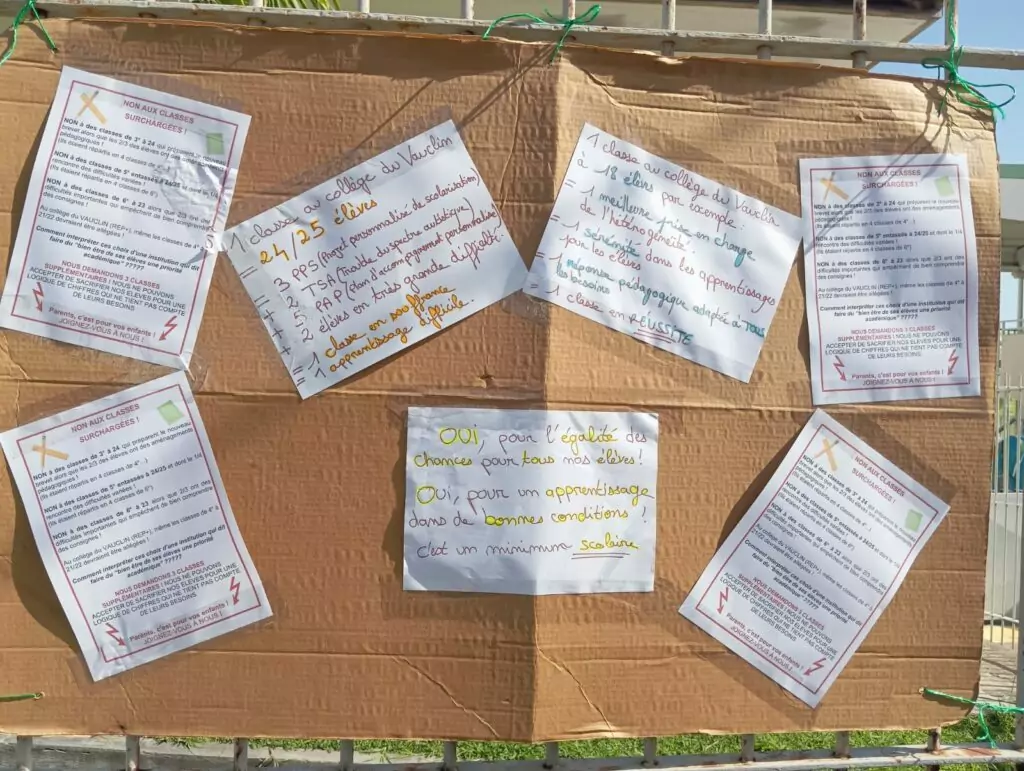 NON AUX CLASSES
SURCHARGÉES !
NON à des classes de 3° à 24 qui préparent le nouveau
brevet alors que les 2/3 des élèves ont des aménagements
pédagogiques !
(Ils étaient répartis en 4 classes de 4°...)
NON à des classes de 5° entassés à 24/25 et dont le 1/4
rencontre des difficultés variées !
(Ils étaient répartis en 4 classes de 6°)
NON à des classes de 6° à 23 alors que 2/3 ont des
difficultés importantes qui empêchent de bien comprendre
des consignes !
Au collège du VAUCLIN (REP+), même les classes de 4° à
21/22 devraient être allégées !
Comment interpréter ces choix d'une institution qui dit
faire du "bien être de ses élèves une priorité
académique" ?????
NOUS DEMANDONS 3 CLASSES
SUPPLÉMENTAIRES ! NOUS NE POUVONS
ACCEPTER DE SACRIFIER NOS ÉLÈVES POUR UNE
LOGIQUE DE CHIFFRES QUI NE TIENT PAS COMPTE
DE LEURS BESOINS
Parents, c'est pour vos enfants !
JOIGNEZ-VOUS À NOUS !
1 classe au collège du Vauclin
= 24/25 élèves
= 3 PPS (Projet personnalisé de scolarisation)
+ 2 TSA (Trouble du spectre autistique)
+ 5 PAP (plan d'accompagnement personnalisé)
+ 2 élèves en très grande difficulté.
= 1 classe en souffrance
= 1 apprentissage difficile.
1 classe au collège du Vauclin
à 18 élèves par exemple :
= 1 meilleure prise en charge
de l'hétérogénéité.
= 1 sérénité dans les apprentissages
pour les élèves
= 1 réponse pédagogique adaptée à TOUS
les besoins
= 1 classe en RÉUSSITE
NON AUX CLASSES
SURCHARGÉES !
NON à des classes de 3° à 24 qui préparent le nouveau
brevet alors que les 2/3 des élèves ont des aménagements
pédagogiques !
(Ils étaient répartis en 4 classes de 4°...)
NON à des classes de 5° entassés à 24/25 et dont le 1/4
rencontre des difficultés variées !
(Ils étaient répartis en 4 classes de 6°)
NON à des classes de 6° à 23 alors que 2/3 ont des
difficultés importantes qui empêchent de bien comprendre
des consignes !
Au collège du VAUCLIN (REP+), même les classes de 4° à
21/22 devraient être allégées !
Comment interpréter ces choix d'une institution qui dit
faire du "bien être de ses élèves une priorité
académique" ?????
NOUS DEMANDONS 3 CLASSES
SUPPLÉMENTAIRES ! NOUS NE POUVONS
ACCEPTER DE SACRIFIER NOS ÉLÈVES POUR UNE
LOGIQUE DE CHIFFRES QUI NE TIENT PAS COMPTE
DE LEURS BESOINS
Parents, c'est pour vos enfants !
JOIGNEZ-VOUS À NOUS !
NON AUX CLASSES
SURCHARGÉES !
NON à des classes de 3° à 24 qui préparent le nouveau
brevet alors que les 2/3 des élèves ont des aménagements
pédagogiques !
(Ils étaient répartis en 4 classes de 4°...)
NON à des classes de 5° entassés à 24/25 et dont le 1/4
rencontre des difficultés variées !
(Ils étaient répartis en 4 classes de 6°)
NON à des classes de 6° à 23 alors que 2/3 ont des
difficultés importantes qui empêchent de bien comprendre
des consignes !
Au collège du VAUCLIN (REP+), même les classes de 4° à
21/22 devraient être allégées !
Comment interpréter ces choix d'une institution qui dit
faire du "bien être de ses élèves une priorité
académique" ?????
NOUS DEMANDONS 3 CLASSES
SUPPLÉMENTAIRES ! NOUS NE POUVONS
ACCEPTER DE SACRIFIER NOS ÉLÈVES POUR UNE
LOGIQUE DE CHIFFRES QUI NE TIENT PAS COMPTE
DE LEURS BESOINS
Parents, c'est pour vos enfants !
JOIGNEZ-VOUS À NOUS !
OUI, pour l'égalité des
chances pour tous nos élèves !
OUI, pour un apprentissage
dans de bonnes conditions !
c'est un minimum scolaire
NON AUX CLASSES
SURCHARGÉES !
NON à des classes de 3° à 24 qui préparent le nouveau
brevet alors que les 2/3 des élèves ont des aménagements
pédagogiques !
(Ils étaient répartis en 4 classes de 4°...)
NON à des classes de 5° entassés à 24/25 et dont le 1/4
rencontre des difficultés variées !
(Ils étaient répartis en 4 classes de 6°)
NON à des classes de 6° à 23 alors que 2/3 ont des
difficultés importantes qui empêchent de bien comprendre
des consignes !
Au collège du VAUCLIN (REP+), même les classes de 4° à
21/22 devraient être allégées !
Comment interpréter ces choix d'une institution qui dit
faire du "bien être de ses élèves une priorité
académique" ?????
NOUS DEMANDONS 3 CLASSES
SUPPLÉMENTAIRES ! NOUS NE POUVONS
ACCEPTER DE SACRIFIER NOS ÉLÈVES POUR UNE
LOGIQUE DE CHIFFRES QUI NE TIENT PAS COMPTE
DE LEURS BESOINS
Parents, c'est pour vos enfants !
JOIGNEZ-VOUS À NOUS !